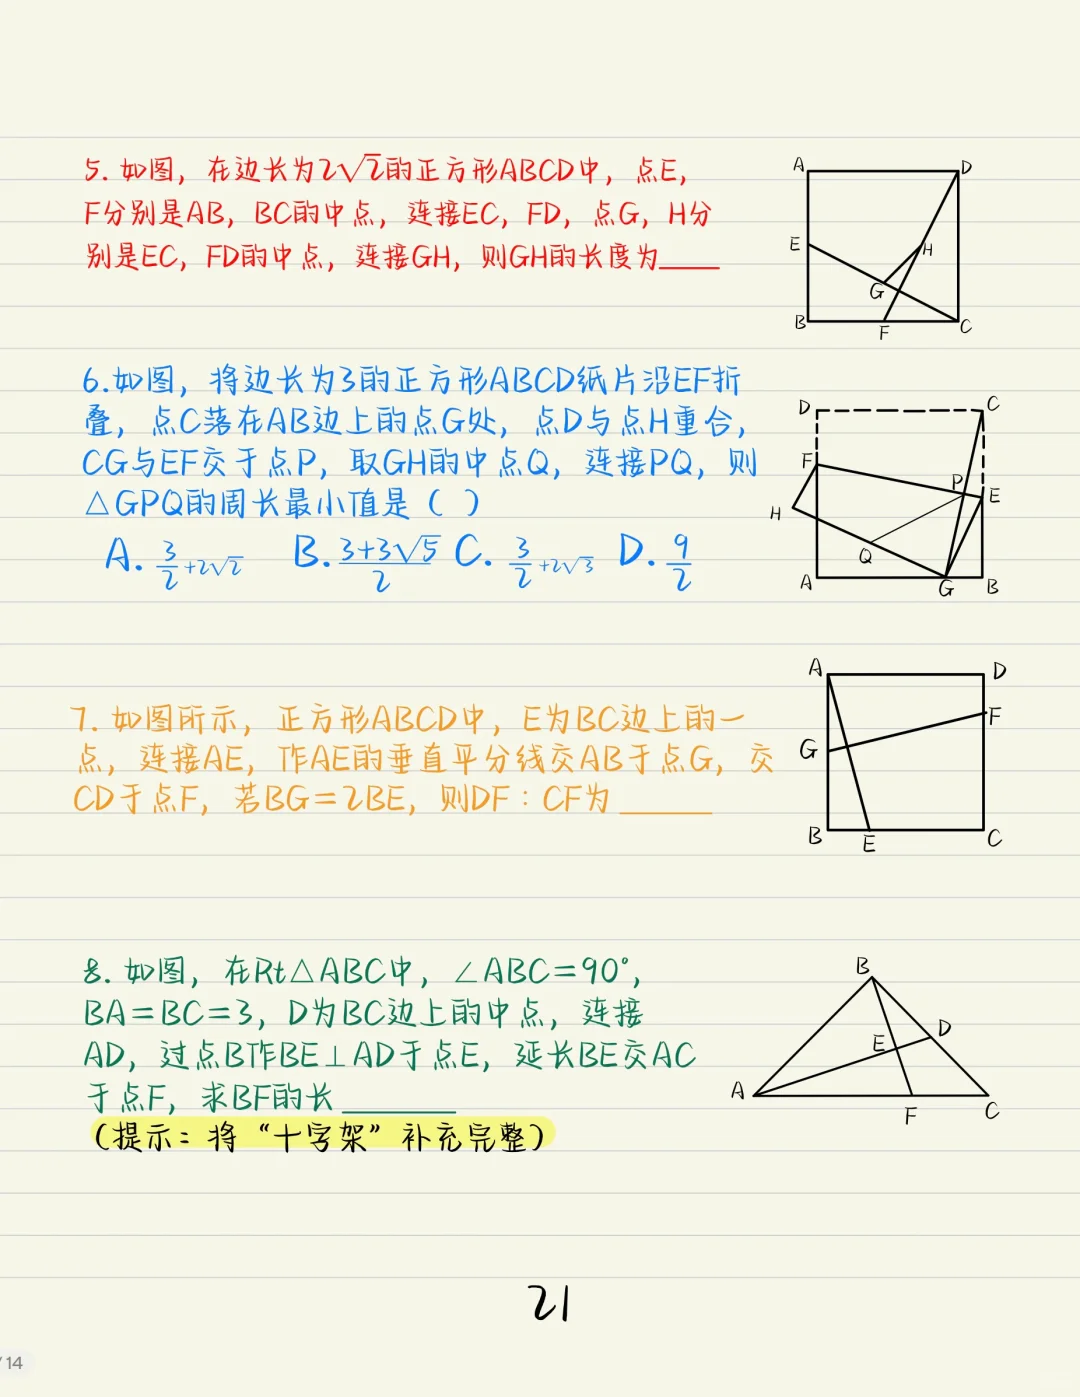 5. 如图，在边长为2√2的正方形ABCD中，点E，
F分别是AB，BC的中点，连接EC，FD，点G，H分
别是EC，FD的中点，连接GH，则GH的长度为____
A D
E H
G
B F C
6.如图，将边长为3的正方形ABCD纸片沿EF折
叠，点C落在AB边上的点G处，点D与点H重合，
CG与EF交于点P，取GH的中点Q，连接PQ，则
△GPQ的周长最小值是（ ）
A. 3/2+2√2 B. (3+3√5)/2 C. 3/2+2√3 D. 9/2
D C
F P E
H
Q
A G B
7. 如图所示，正方形ABCD中，E为BC边上的一
点，连接AE，作AE的垂直平分线交AB于点G，交
CD于点F，若BG=2BE，则DF：CF为______
A D
F
G
B E C
8. 如图，在Rt△ABC中，∠ABC=90°，
BA=BC=3，D为BC边上的中点，连接
AD，过点B作BE⊥AD于点E，延长BE交AC
于点F，求BF的长_______
（提示：将“十字架”补充完整）
B
E D
A F C
21
/14